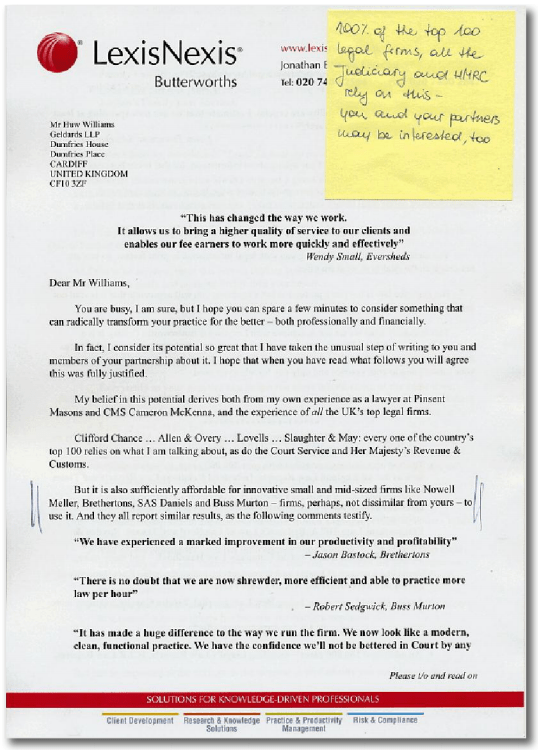 LexisNexis®
Butterworths
www.lexis
Jonathan
Tel: 020 74
100% of the top 100
legal firms, all the
Judiciary and HMRC
rely on this –
you and your partners
may be interested, too
Mr Huw Williams
Geldards LLP
Dumfries House
Dumfries Place
CARDIFF
UNITED KINGDOM
CF10 3ZF
“This has changed the way we work.
It allows us to bring a higher quality of service to our clients and
enables our fee earners to work more quickly and effectively”
Wendy Small, Eversheds
Dear Mr Williams,
You are busy, I am sure, but I hope you can spare a few minutes to consider something that
can radically transform your practice for the better – both professionally and financially.
In fact, I consider its potential so great that I have taken the unusual step of writing to you and
members of your partnership about it. I hope that when you have read what follows you will agree
this was fully justified.
My belief in this potential derives both from my own experience as a lawyer at Pinsent
Masons and CMS Cameron McKenna, and the experience of all the UK’s top legal firms.
Clifford Chance … Allen & Overy … Lovells … Slaughter & May: every one of the country’s
top 100 relies on what I am talking about, as do the Court Service and Her Majesty’s Revenue &
Customs.
But it is also sufficiently affordable for innovative small and mid-sized firms like Nowell
Meller, Brethertons, SAS Daniels and Buss Murton – firms, perhaps, not dissimilar from yours – to
use it. And they all report similar results, as the following comments testify.
“We have experienced a marked improvement in our productivity and profitability”
– Jason Bastock, Brethertons
“There is no doubt that we are now shrewder, more efficient and able to practice more
law per hour”
– Robert Sedgwick, Buss Murton
“It has made a huge difference to the way we run the firm. We now look like a modern,
clean, functional practice. We have the confidence we’ll not be bettered in Court by any
Please t/o and read on
SOLUTIONS FOR KNOWLEDGE-DRIVEN PROFESSIONALS
Client Development Research & Knowledge Solutions Practice & Productivity Management Risk & Compliance